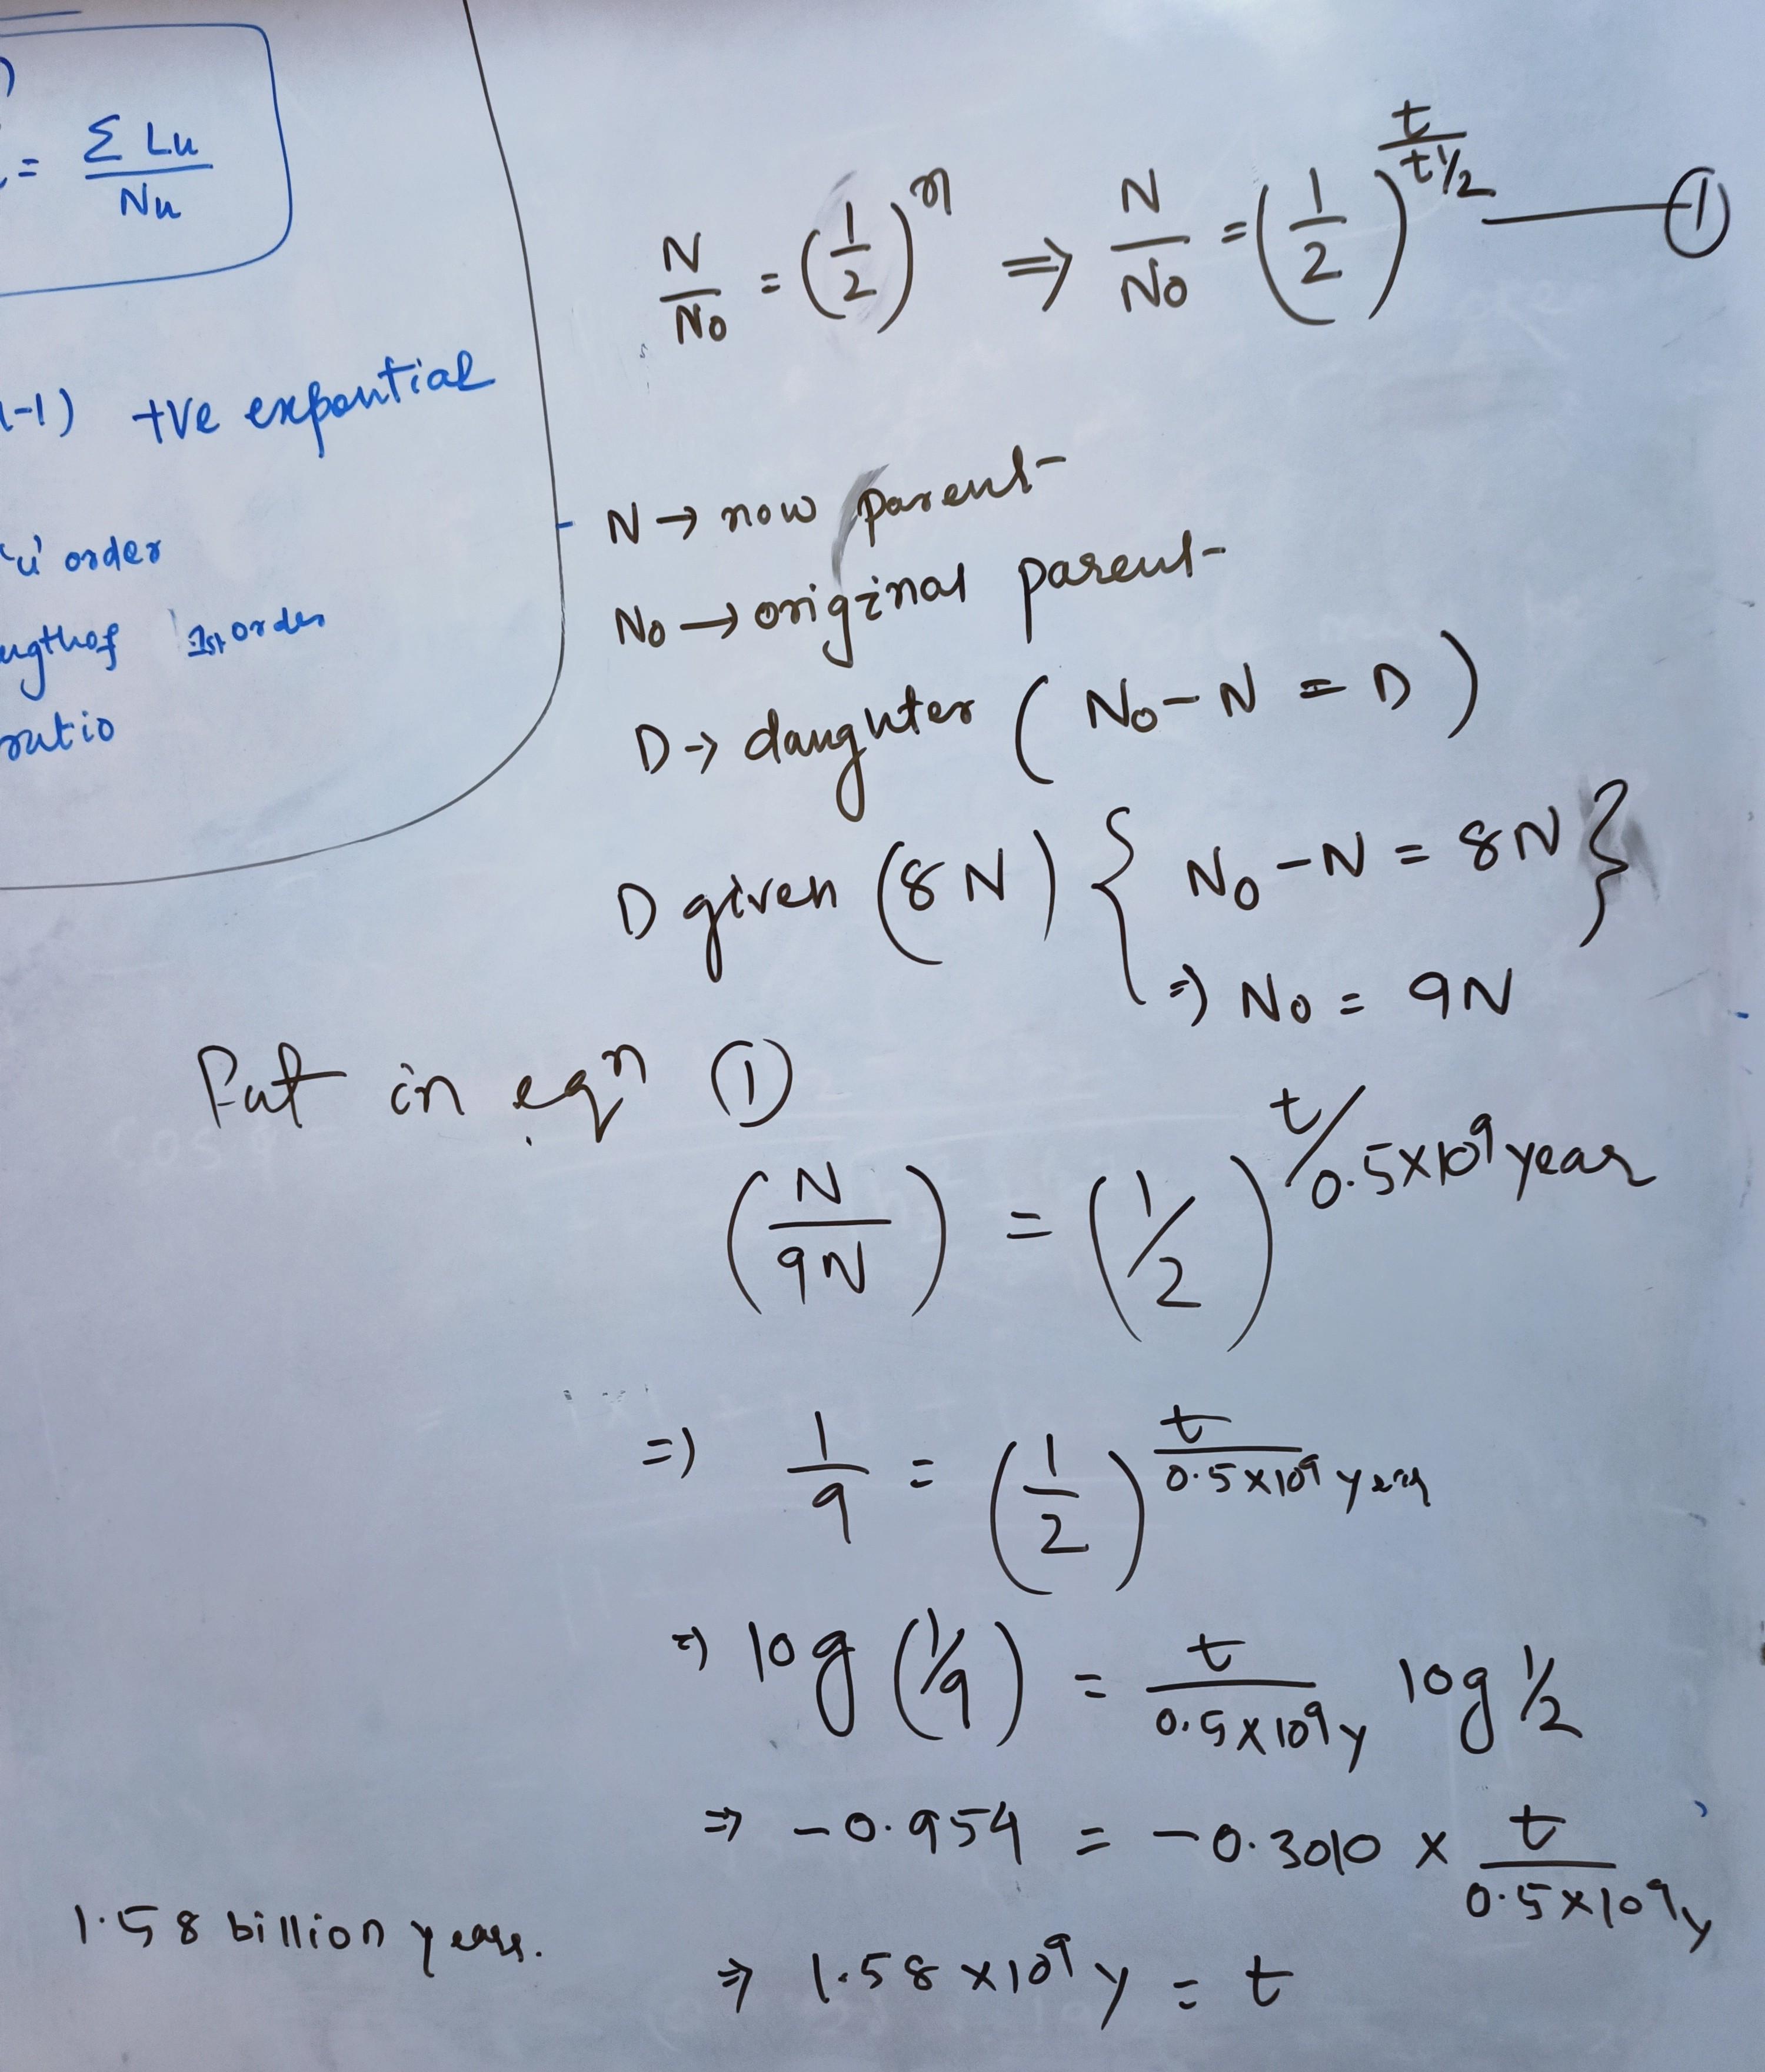 = Σ Lu / Nu
-1) +ve expontial
'u' order
1st order
ratio
N/No = (1/2)^n ⇒ N/No = (1/2)^(t/t½) — ①
N → now parent
No → original parent
D → daughter (No - N = D)
D given (8N) { No - N = 8N }
⇒ No = 9N
Put in eqn ①
(N/9N) = (1/2)^(t/0.5×10⁹ year)
⇒ 1/9 = (1/2)^(t/0.5×10⁹ year)
⇒ log (1/9) = t/0.5×10⁹y log ½
⇒ -0.954 = -0.3010 × t/0.5×10⁹y
⇒ 1.58 ×10⁹ y = t
1.58 billion years.